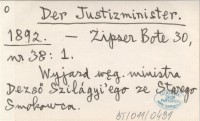 o
Der Justizminister.
1892. — Zipser Bote 30,
nr 38: 1.
Wyjazd węg. ministra
Dezső Szilágyi'ego ze Starego
Smokowca.